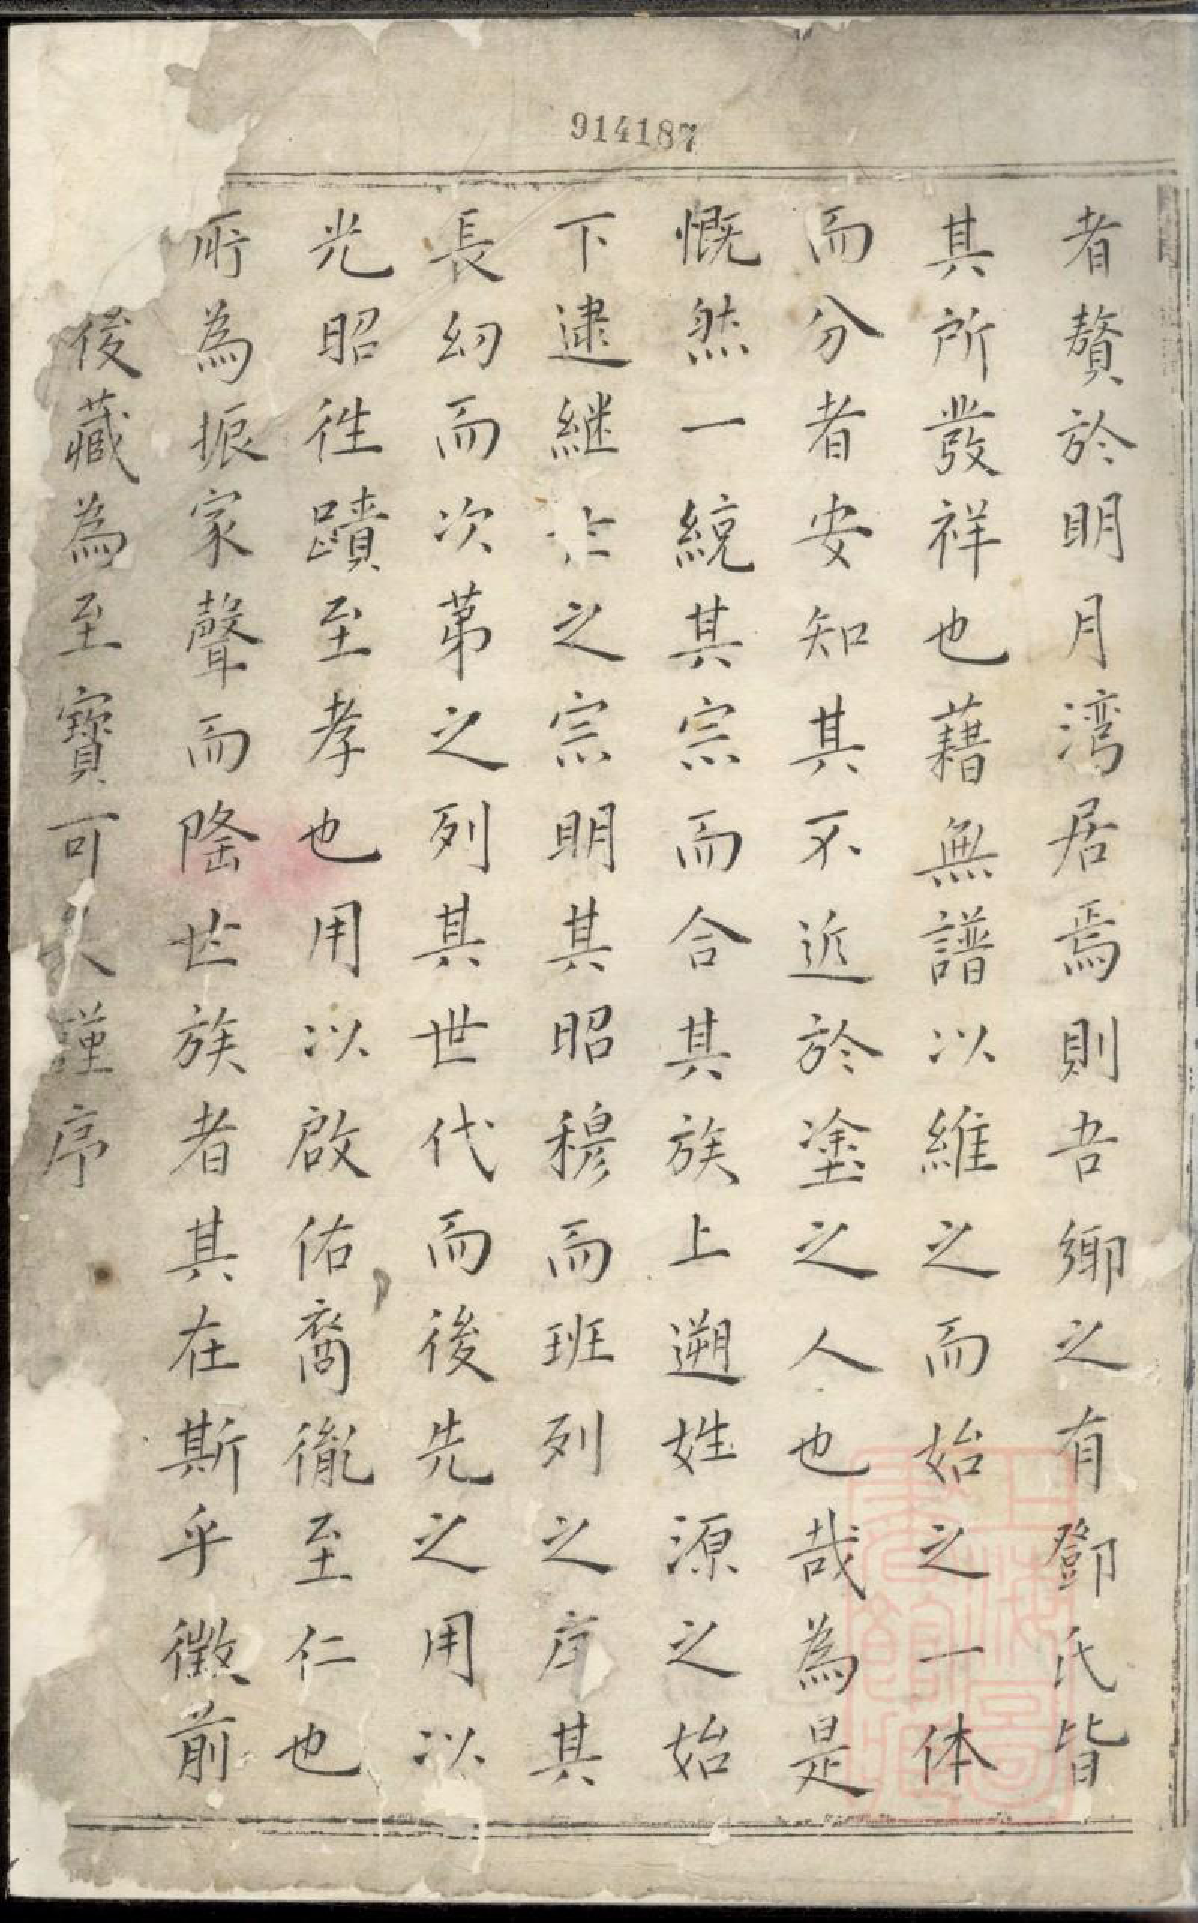 914187
者贅於明月湾居焉則吾鄉之有鄧氏皆
其所發祥也藉無譜以維之而始之一体
而分者安知其不近於塗之人也哉為是
慨然一統其宗而合其族上遡姓源之始
下逮継之宗明其昭穆而班列之序其
長幼而次第之列其世代而後先之用以
光昭徃蹟至孝也用以啟佑裔胤至仁也
所為振家聲而隆世族者其在斯乎徴前
後藏為至寶可謹序
上海圖書館藏